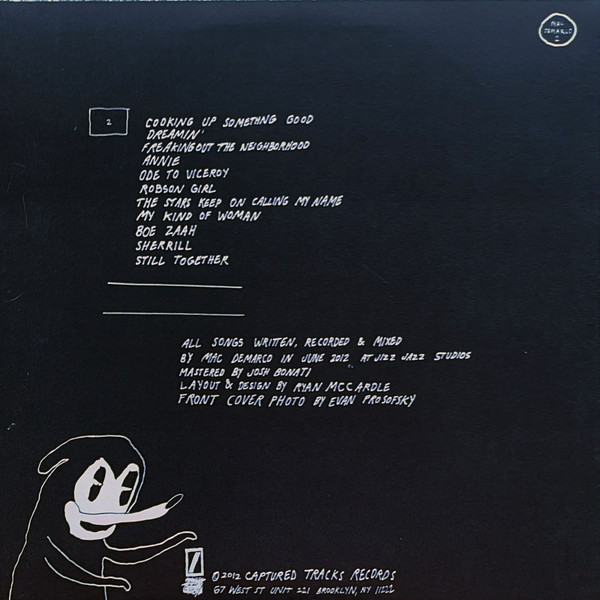 MAC
DEMARCO
2
2
COOKING UP SOMETHNG GOOD
DREAMIN'
FREAKINGOUT THE NEIGHBORHOOD
ANNIE
ODE TO VICEROY
ROBSON GIRL
THE STARS KEEP ON CALLING MY NAME
MY KIND OF WOMAN
BOE ZAAH
SHERRILL
STILL TOGETHER
ALL SONGS WRITTEN, RECORDED & MIXED
BY MAC DEMARCO IN JUNE 2012 AT JIZZ JAZZ STUDIOS
MASTERED BY JOSH BONATI
LAYOUT & DESIGN BY RYAN MCCARDLE
FRONT COVER PHOTO BY EVAN PROSOFSKY
©2012 CAPTURED TRACKS RECORDS
67 WEST ST UNIT 221 BROOKLYN, NY 11222